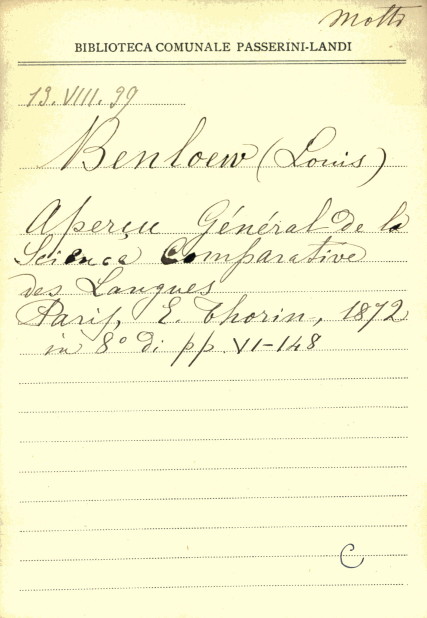 Motti
BIBLIOTECA COMUNALE PASSERINI-LANDI
13.VIII.39
Benloew (Louis)
Aperçu Général de la
Science Comparative
des Langues
Paris, E. Thorin, 1872
in 8º di pp. VI-148
C